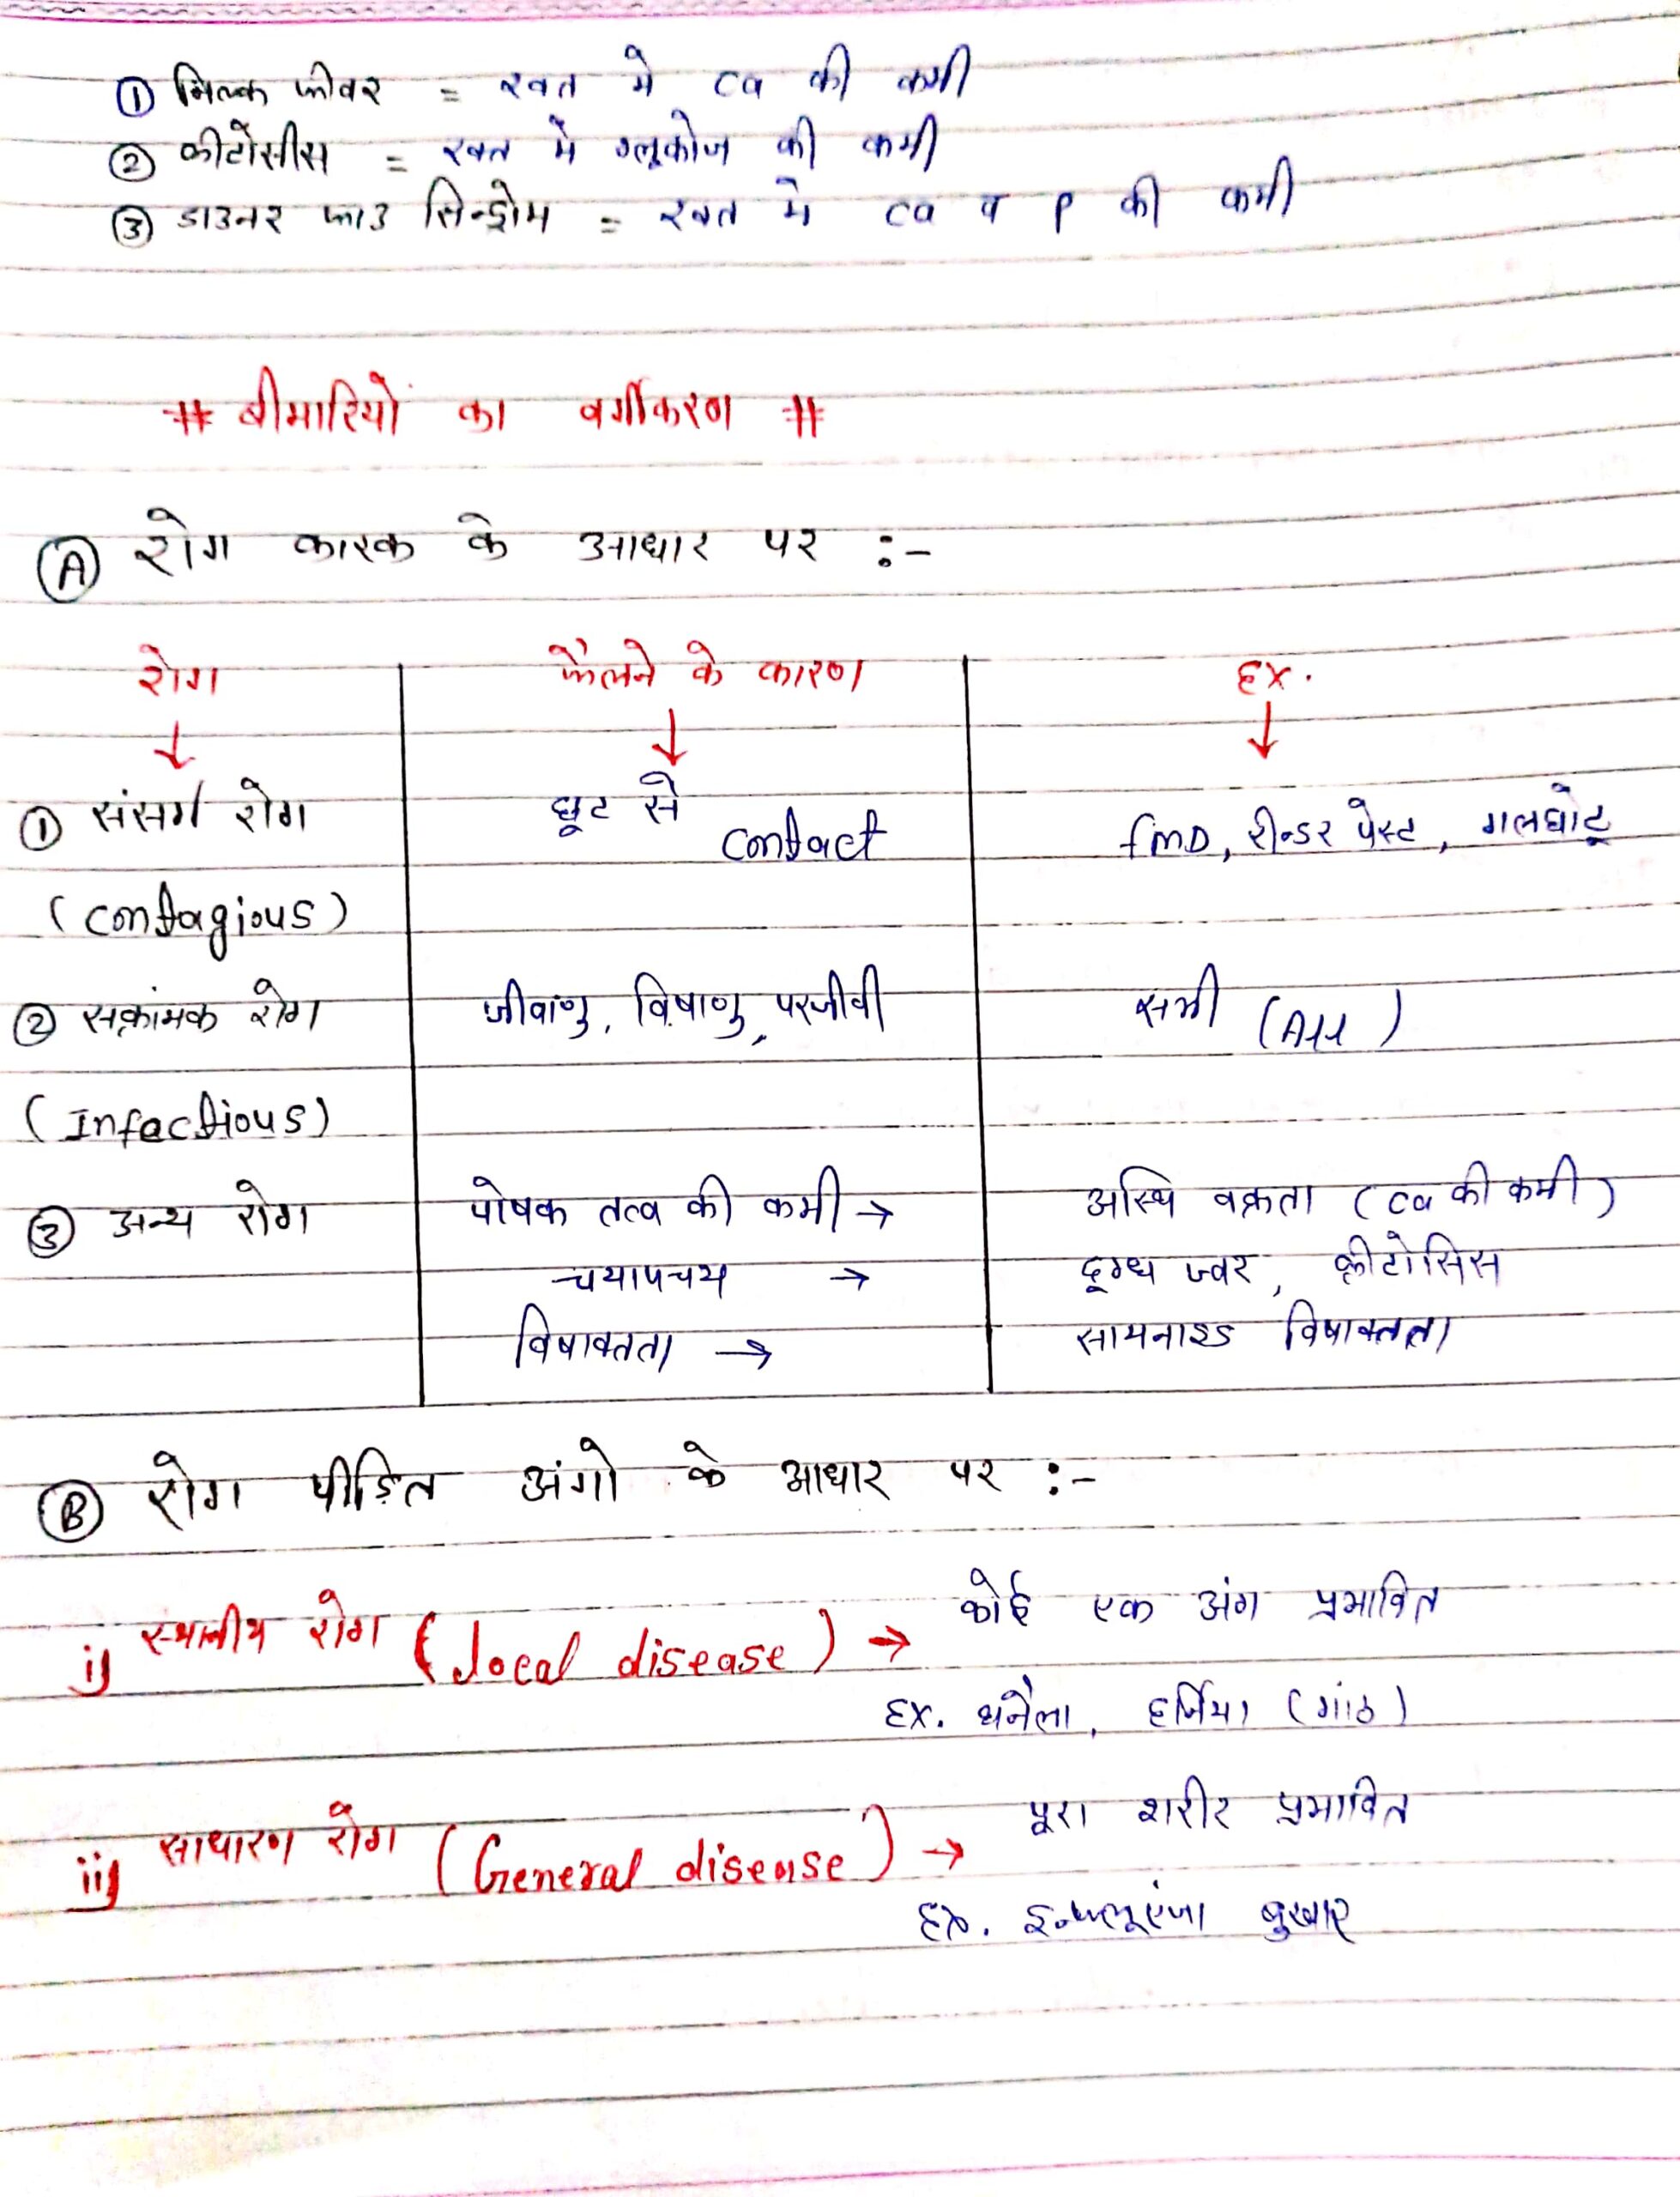 ① मिल्क फीवर = रक्त मे ca की कमी
② कीटोसीस = रक्त में ग्लूकोज की कमी
③ डाउनर काउ सिन्ड्रोम = रक्त मे ca व P की कमी
# बीमारियो का वर्गीकरण #
Ⓐ रोग कारक के आधार पर :-
रोग फैलने के कारण Ex.
↓ ↓ ↓
① संसर्ग रोग छूट से contact fmD, रीन्डर पेस्ट, गलघोटू
(contagious)
② सक्रांमक रोग जीवाणु, विषाणु, परजीवी सभी (All)
(Infactious)
③ अन्य रोग पोषक तत्व की कमी → अस्थि वक्रता (ca की कमी)
चयापचय → दूग्ध ज्वर, कीटोसिस
विषाक्तता → सायनाइड विषाक्तता
Ⓑ रोग पीड़ित अंगो के आधार पर :-
i) स्थानीय रोग (local disease) → कोई एक अंग प्रभावित
Ex. थनैला, हर्निया (गांठ)
ii) साधारण रोग (General disease) → पूरा शरीर प्रभावित
Ex. इन्फ्लूएंजा बुखार